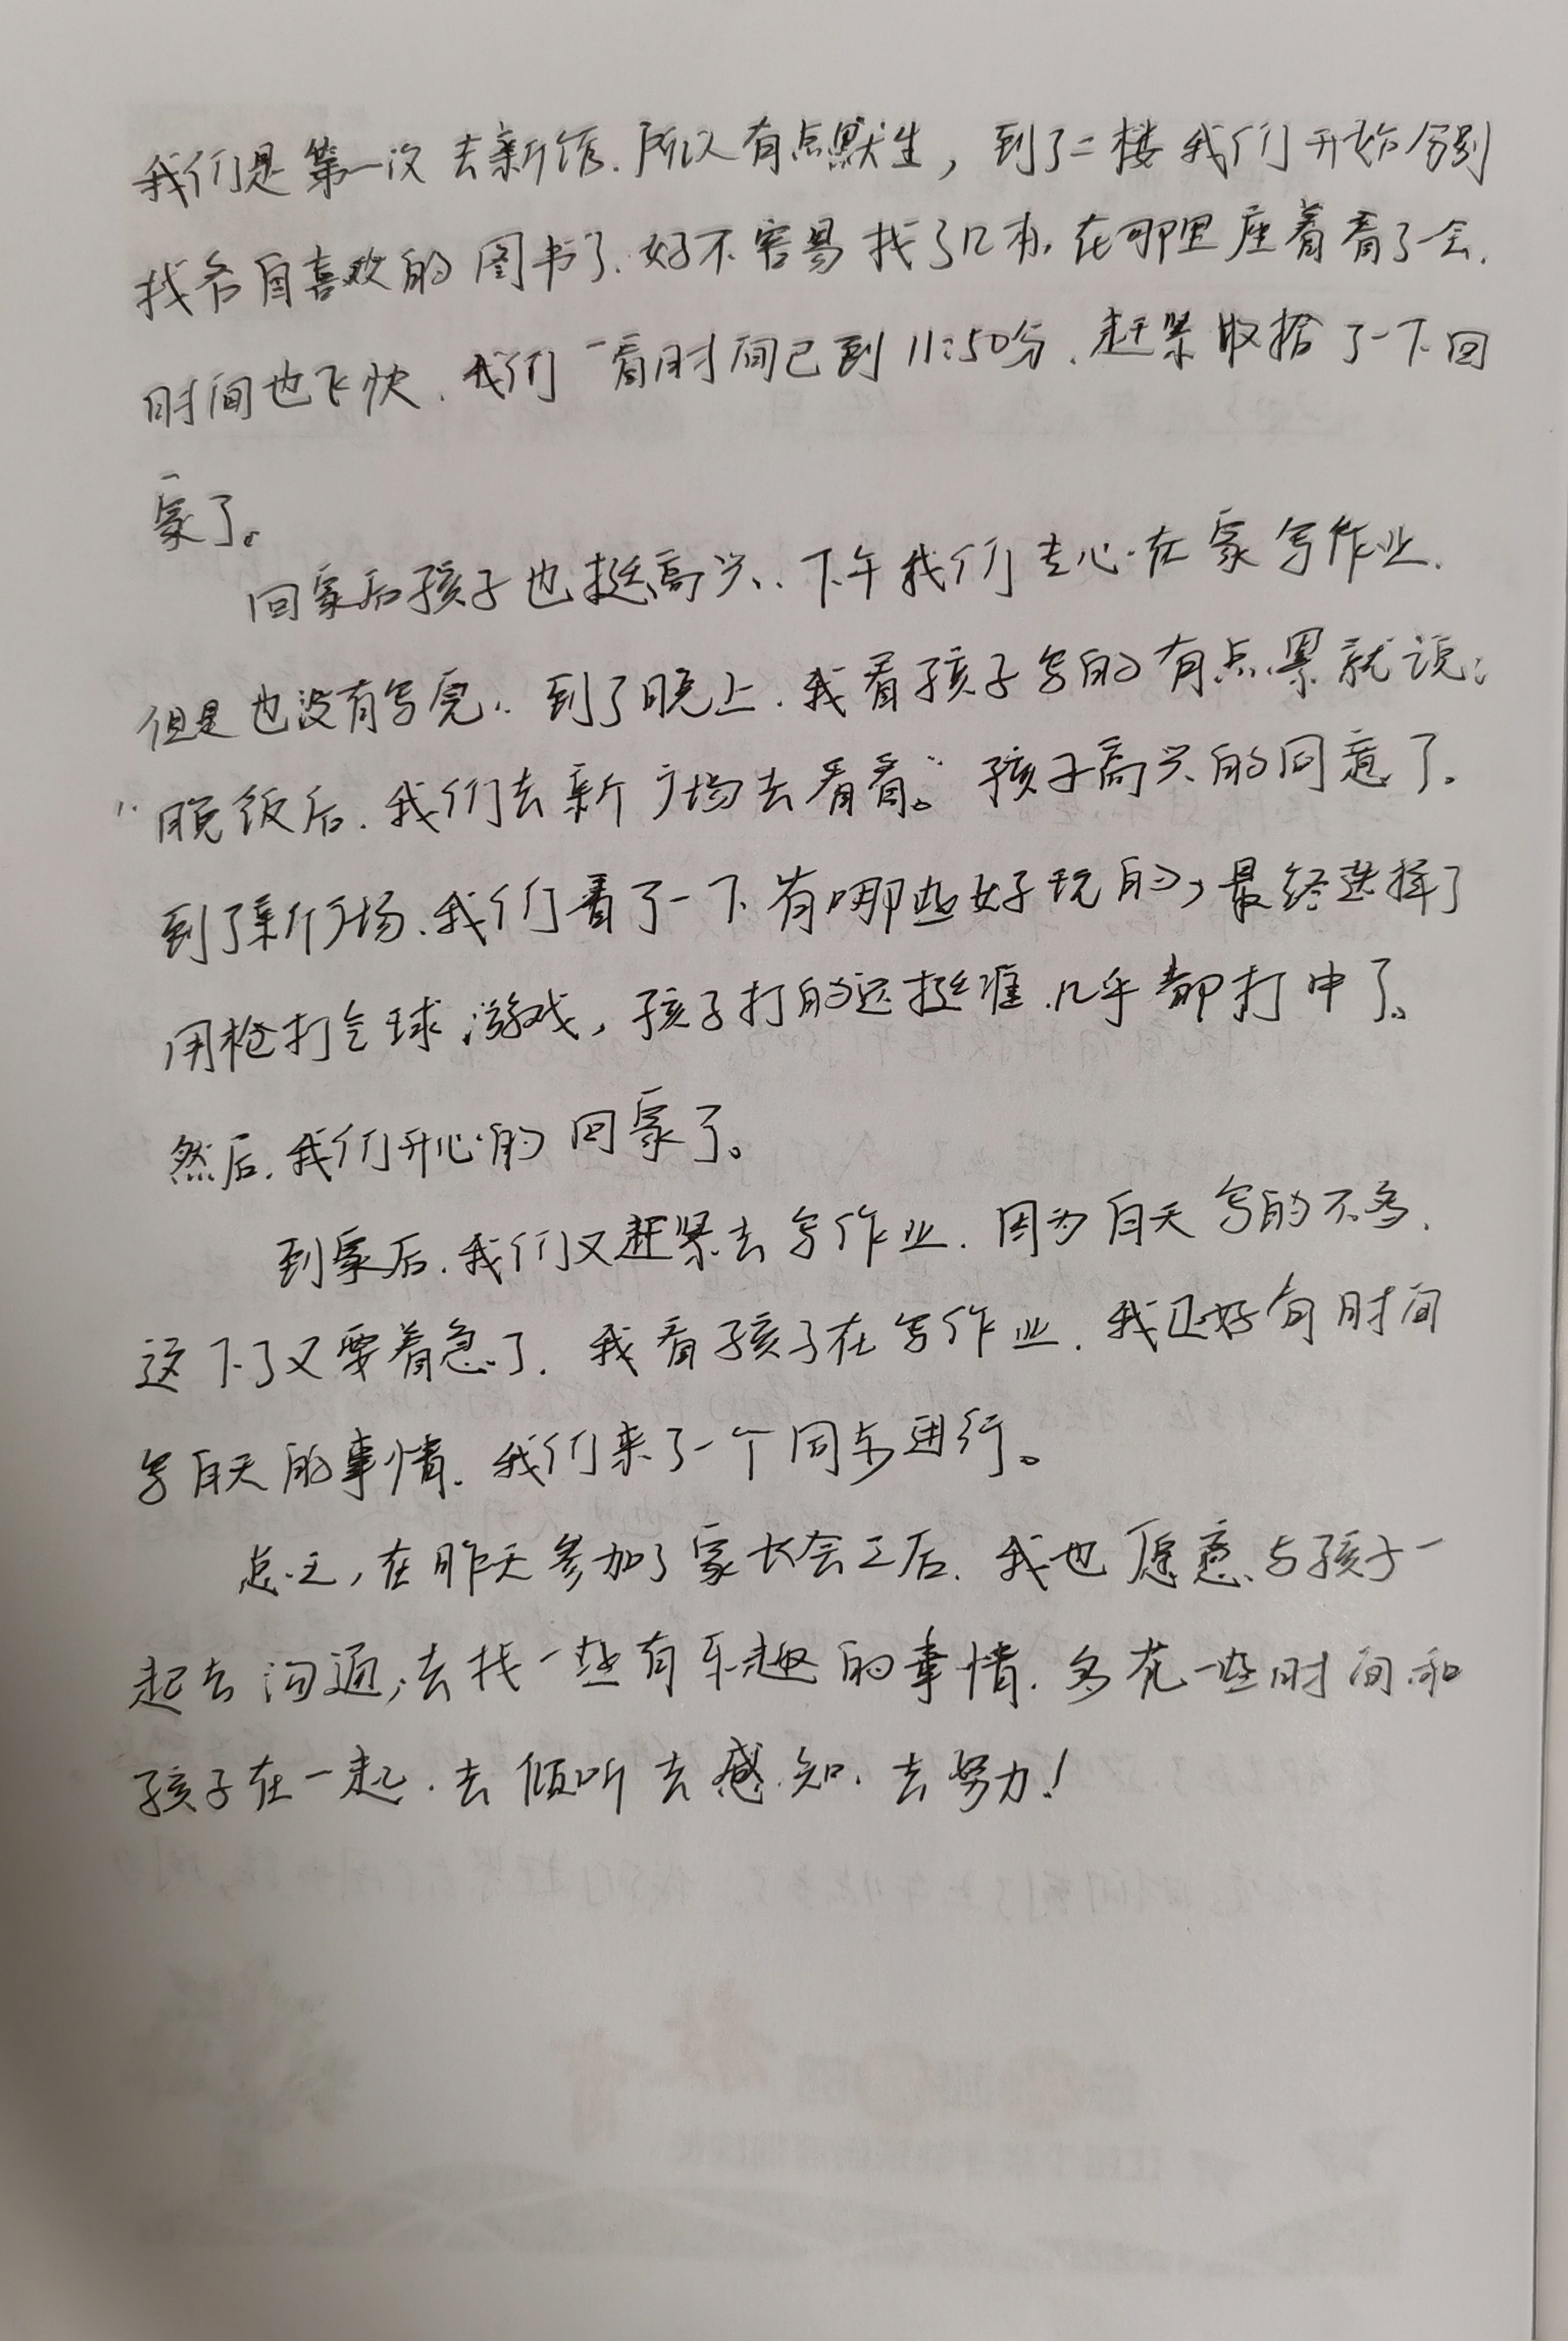 我们是第一次去新馆.所以有点默生，到了二楼我们开始分别
找各自喜欢的图书了.好不容易找了几本.在那里座着看了会.
时间也飞快.我们一看时间已到11:50分.赶紧收拾了一下回
家了。
回家后孩子也挺高兴.下午我们专心在家写作业.
但是也没有写完.到了晚上.我看孩子写的有点累就说:
“晚饭后.我们去新广场去看看。”孩子高兴的同意了.
到了新广场.我们看了一下有哪些好玩的,最终选择了
用枪打气球游戏，孩子打的还挺准.几乎都打中了。
然后.我们开心的回家了。
到家后.我们又赶紧去写作业.因为白天写的不多.
这下子又要着急了.我看孩子在写作业.我正好有时间
写白天的事情.我们来了一个同步进行。
总之,在昨天参加了家长会之后.我也愿意与孩子一
起去沟通,去找一些有乐趣的事情.多花一些时间和
孩子在一起.去倾听去感知.去努力!